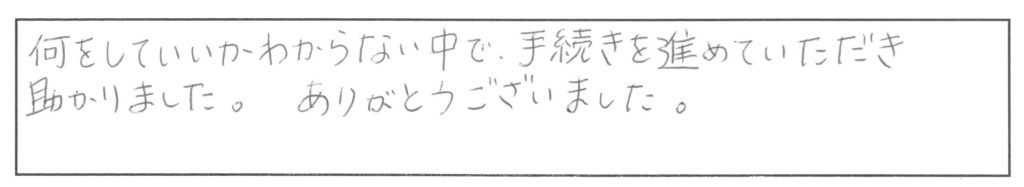 何をしていいかわからない中で、手続きを進めていただき
助かりました。 ありがとうございました。